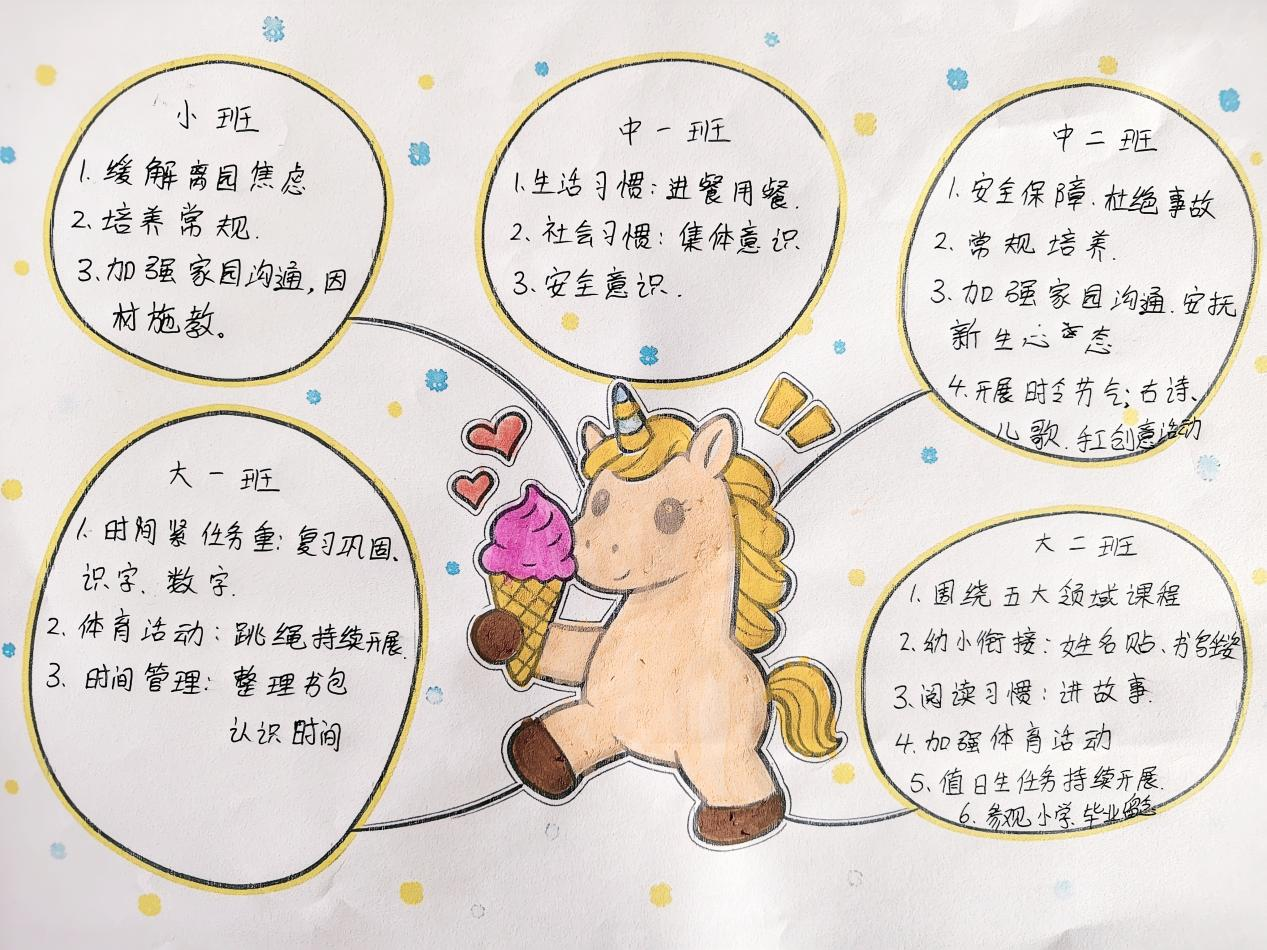 小班
1. 缓解离园焦虑
2. 培养常规.
3. 加强家园沟通,因
材施教。
中一班
1. 生活习惯:进餐用餐.
2. 社会习惯:集体意识
3. 安全意识.
中二班
1. 安全保障.杜绝事故
2. 常规培养.
3. 加强家园沟通.安抚
新生心态
4. 开展时令节气;古诗、
儿歌.手工创意活动
大一班
1. 时间紧任务重:复习巩固、
识字、数字.
2. 体育活动:跳绳持续开展.
3. 时间管理:整理书包
认识时间
大二班
1. 围绕五大领域课程
2. 幼小衔接:姓名贴、书包
3. 阅读习惯:讲故事.
4. 加强体育活动
5. 值日生任务持续开展.
6. 参观小学.毕业